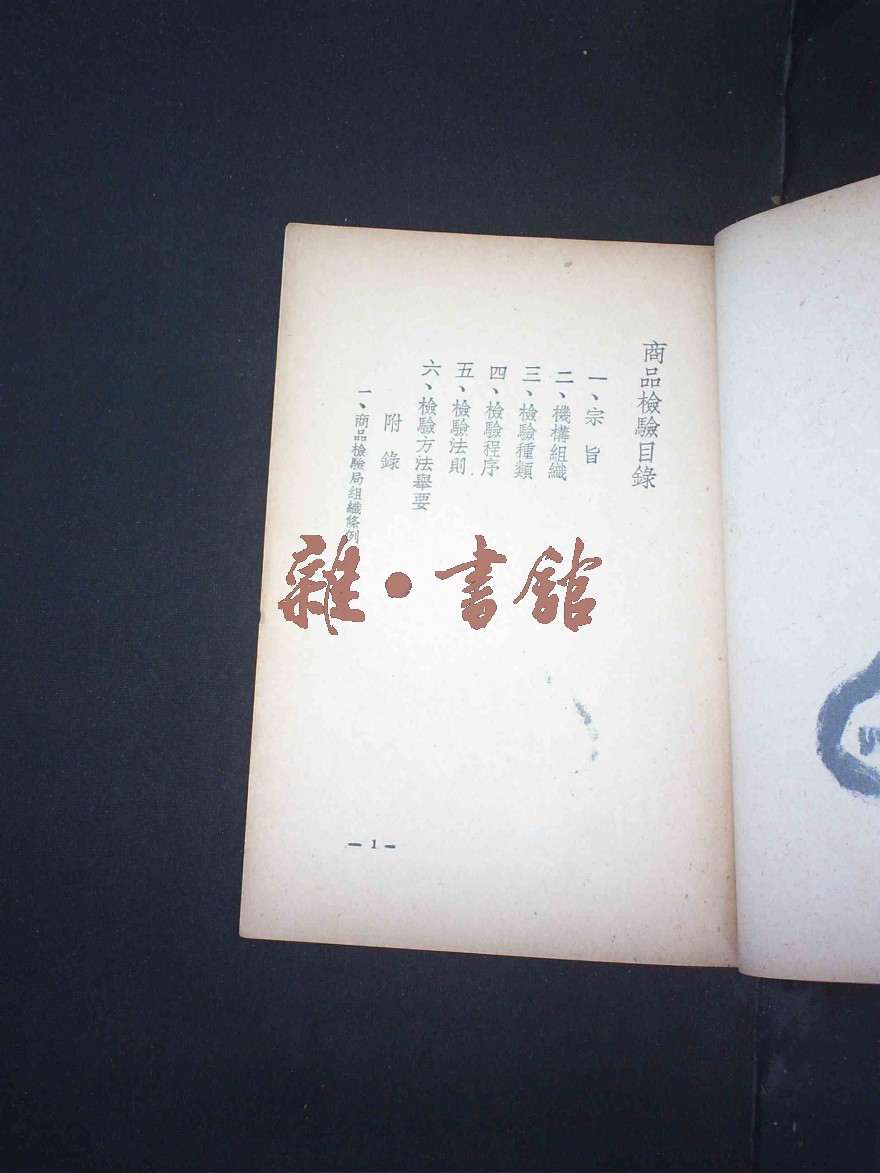 商品檢驗目錄
一、宗旨
二、機構組織
三、檢驗種類
四、檢驗程序
五、檢驗法則
六、檢驗方法舉要
附錄
一、商品檢驗局組織條例
雜·書館
— 1 —